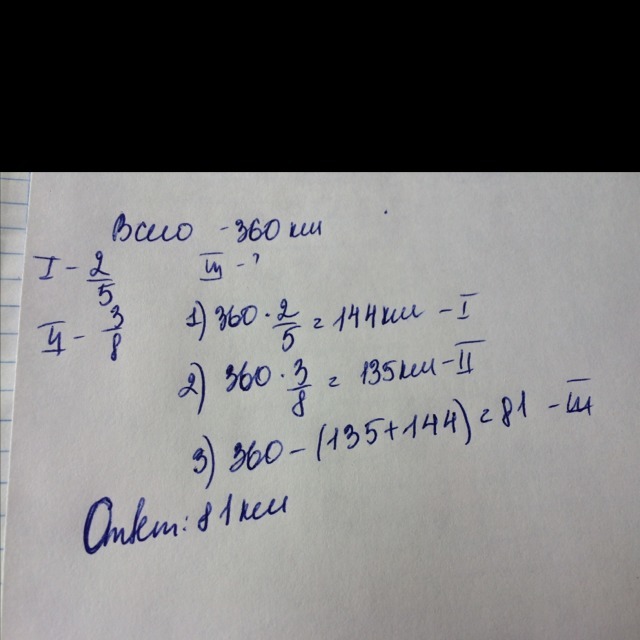 Всего - 360 км
I - 2/5
III - ?
II - 3/8
1) 360 · 2/5 = 144 км - I
2) 360 · 3/8 = 135 км - II
3) 360 - (135 + 144) = 81 - III
Ответ: 81 км